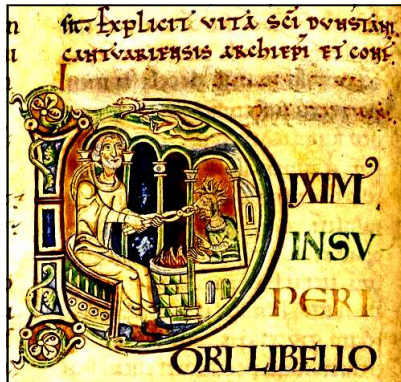 sit. Explicit vita sci dunstani
cantuariensis archiepi et conf.
D
IXIM
INSV
PERI
ORI LIBELLO